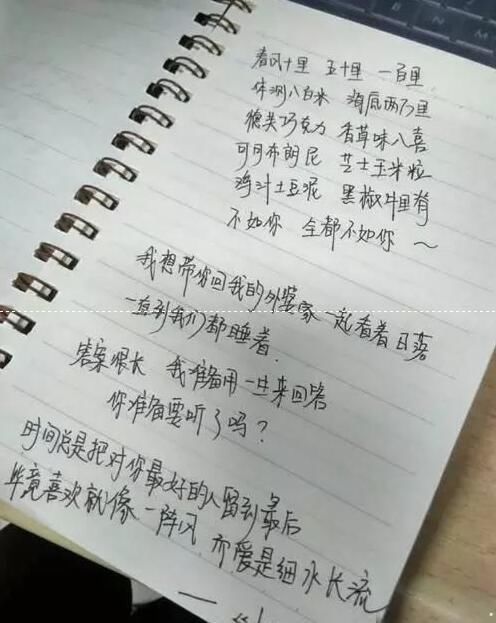 春风十里 五十里 一百里
体测八百米 海底两万里
德芙巧克力 香草味八喜
可可布朗尼 芝士玉米粒
鸡汁土豆泥 黑椒牛里脊
不如你 全都不如你～
我想带你回我的外婆家 一起看着日落
一直到我们都睡着.
答案很长 我准备用一生来回答
你准备要听了吗?
时间总是把对你最好的人留到最后
毕竟喜欢就像一阵风 而爱是细水长流